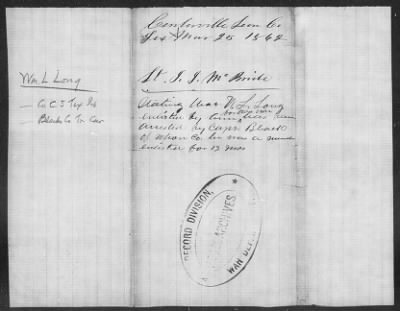 Centerville Leon Co
Tex Mar 25 1862
Wm L Long
— Co C 5 Tex Inf
— Blanks Co Tx Cav
Lt. J. J. McBride
Stating that W. L. Long
enlisted by him has been
arrested by Capt Blanks
of whose Co he was a
enlisted for 12 mos
RECORD DIVISION,
ARCHIVES
WAR DEPT